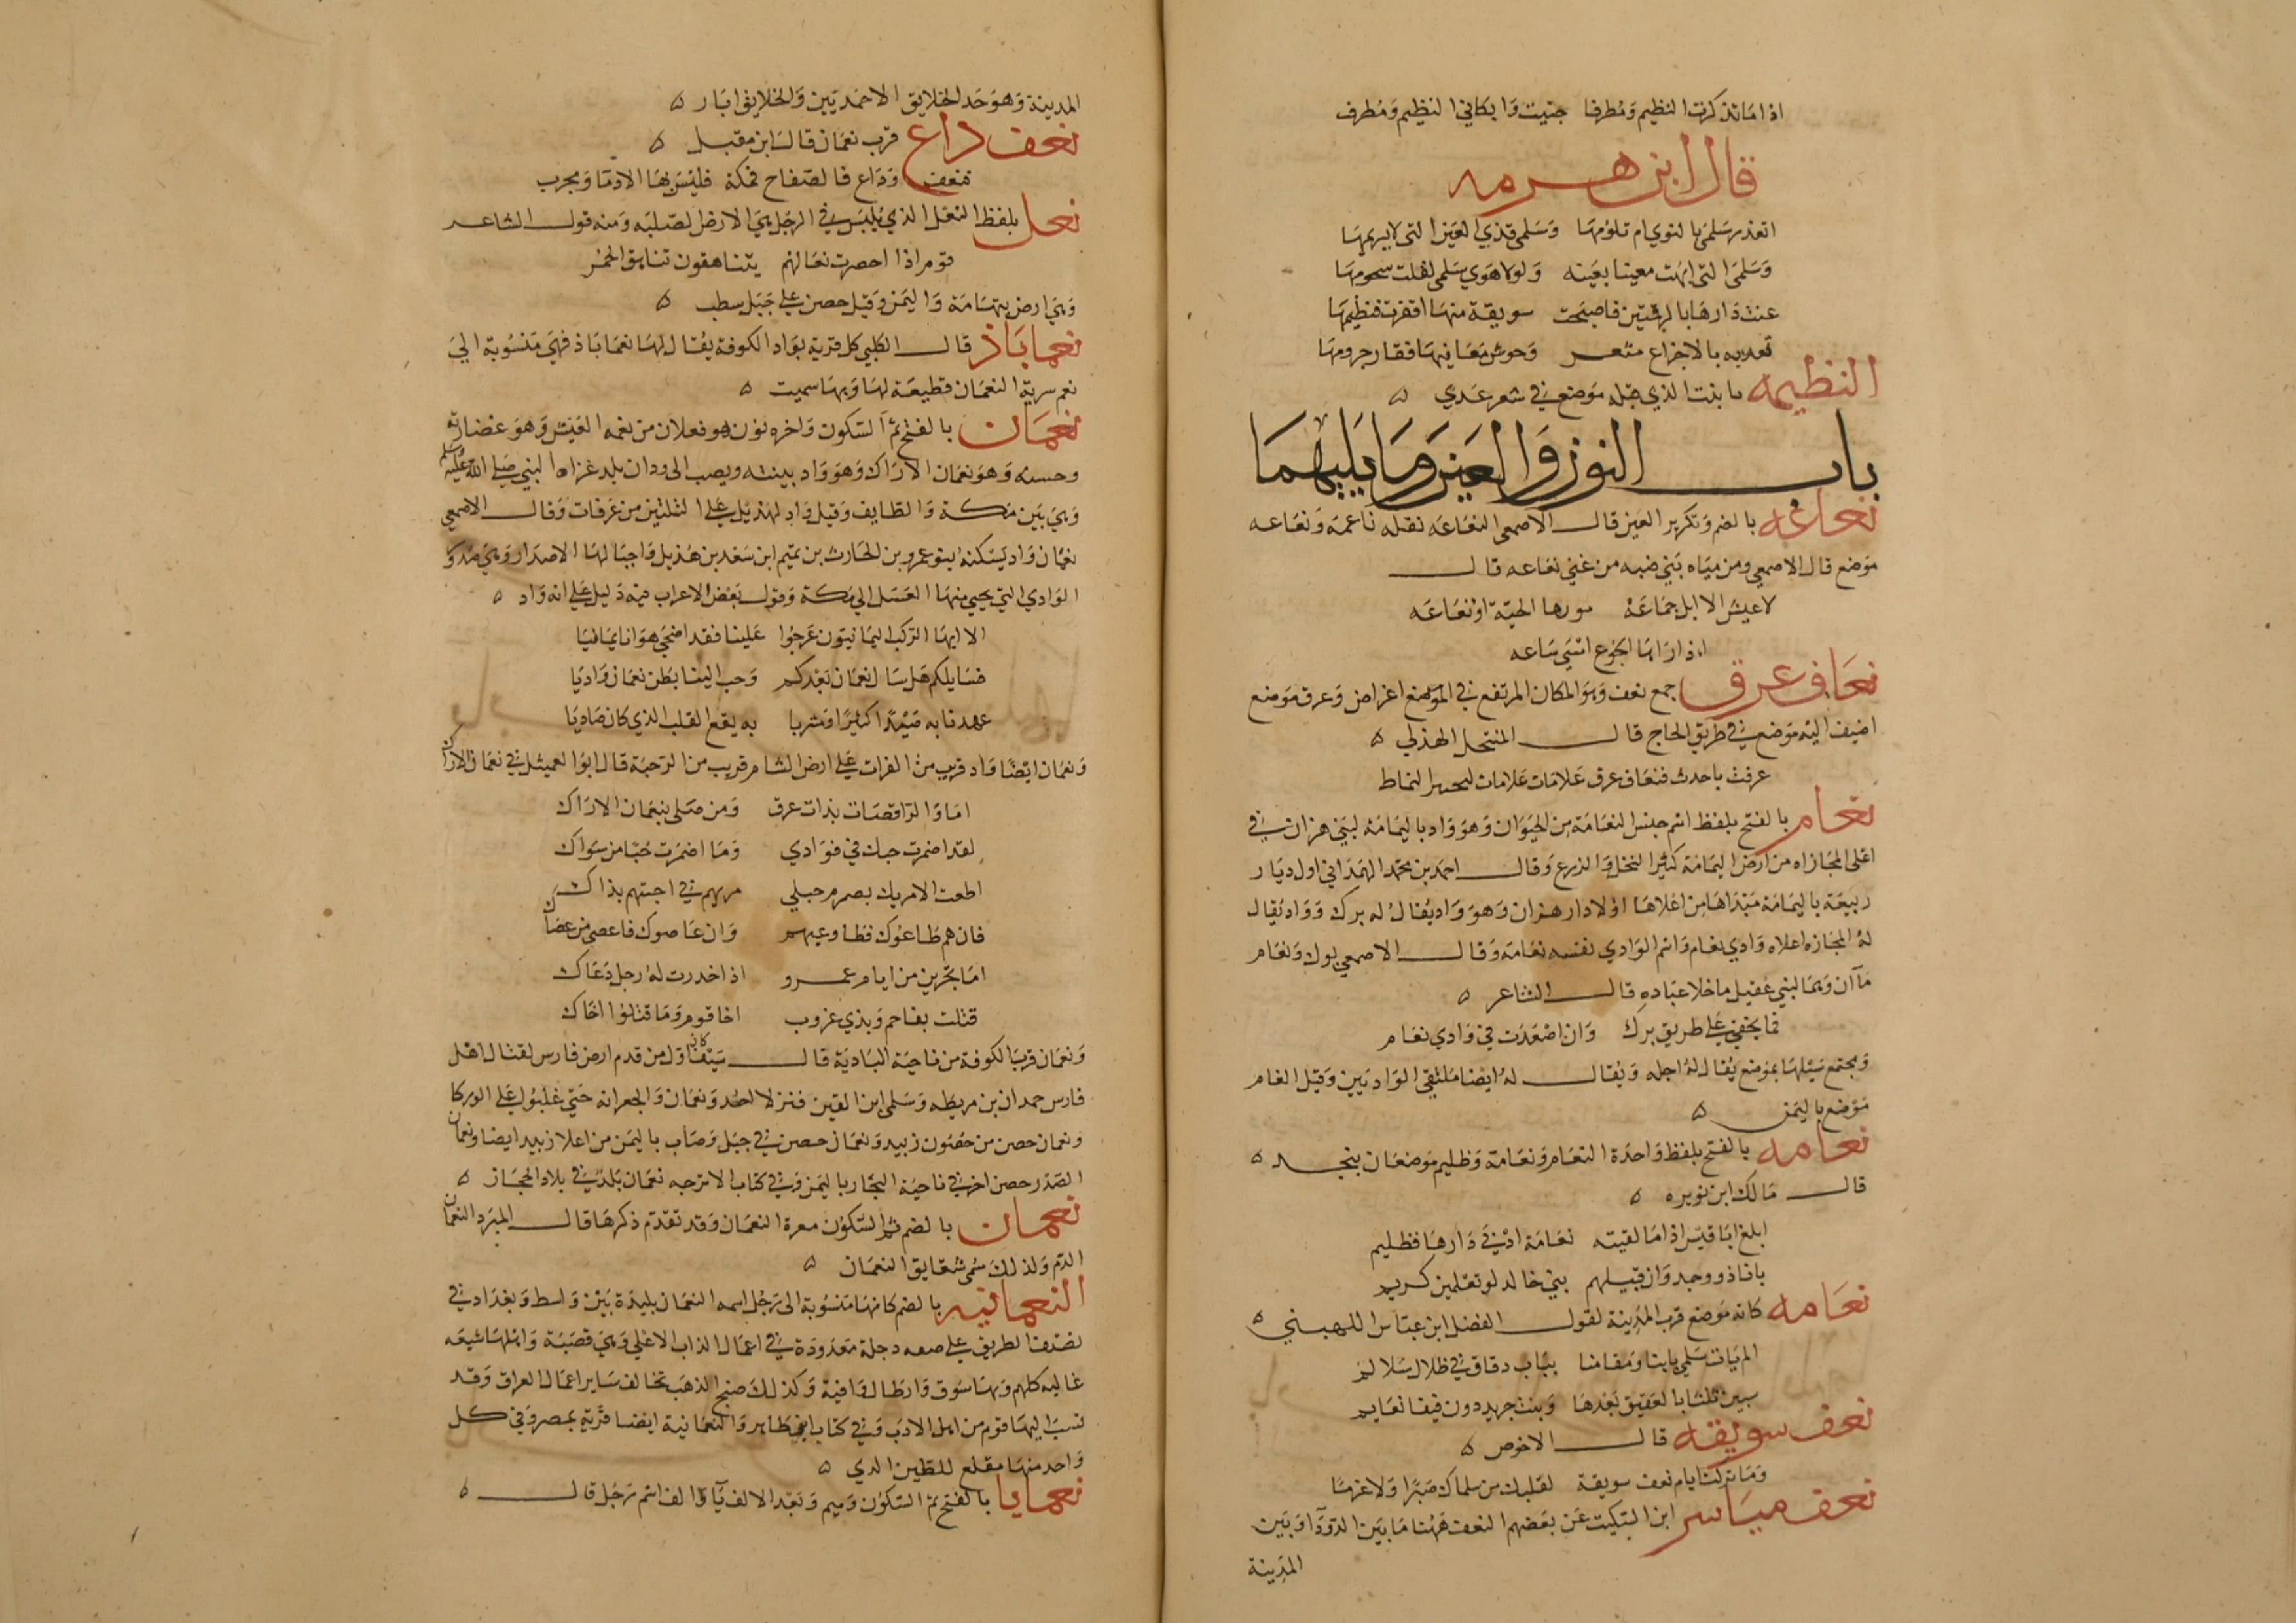 اذا ما تذكرت النظيم ومطرفا جننت وابكاني النظيم ومطرف
قال ابن هرمه
اتعذر سلمى بالنوى ام تلومها وسلمى قذى العين التى لا يريمها
وسلمى التى معينا بعينه ولولا هوى سلمى لقلت سجومها
عفت دارها بالبرقتين فاصبحت سويقة منها اقفرت فنظيمها
بالاجزاع وحوش مغانيها فقار جرومها
النظيمه ما بنت الذي قبله موضع في شعر عدي ه
باب النون والعين وما يليهما
نعاعه بالضم وتكرير العين قال الاصمعى النعاعه بقله ناعمة ونعاعه
موضع قال الاصمعي ومن مياه بني ضبه من غني نعاعه قال
لا عيش الا ابل جماعه موردها الجية او نعاعه
اذا راها الجوع امسى ساعه
نعاف عرق جمع نعف وهو المكان المرتفع في الموضع اعراض وعرق موضع
اضيف اليه موضع في طريق الحاج قال المنتحل الهذلي ه
عرفت باحدث فنعاف عرق علامات علامات النماط
نعام بالفتح بلفظ اسم جنس النعامة من الحيوان وهو واد باليمامة لبني هزان في
اعلى المجازاه من ارض اليمامة كثير النخل والزرع وقال احمد بن محمد الهمذاني اول ديار
ربيعة باليمامة مبتداها من اعلاها اولا دار هزان وهو واد يقال له برك وواد يقال
له المجازه اعلاه وادي نعام واسم الوادي نفسه نعامة وقال الاصمعي برك ونعام
مآان وهما لبني عقيل ما خلا عباده قال الشاعر ه
فما يخفى على طريق برك وان اصعدت في وادي نعام
ومجتمع سيلها بموضع يقال له اجله ويقال له ايضا ملتقى الواديين وقيل النعام
موضع باليمن ه
نعامه بالفتح بلفظ واحدة النعام ونعامة وظليم موضعان بنجد ه
قال مالك ابن نويره ه
ابلغ ابا قيس اذا ما لقيته نعامة ادنى دارها فظليم
بانا ذوو جد وان قبيلهم بني خالد لو تعلمين كريم
نعامه كانه موضع قرب المدينة لقول الفضل ابن عباس اللهبي ه
الم يات سلمى ناينا ومقامنا بباب دقاق في ظلال سلالم
سنين ثلثا بالعقيق نعدها ونبت جريد دون فيفا نعايم
نعف سويقه قال الاخوص ه
وما تركت ايام نعف سويقة لقلبك من سلماك صبرا ولا عزما
نعف مياسر ابن السكيت عن بعضهم النعف ههنا ما بين الدودآء وبين
المدينة
المدينة وهو حد الخلايق الاحمديين والخلايق ابار ه
نعف وداع قرب نعمان قال ابن مقبل ه
فنعف وداع فالصفاح فمكة فليس بها الا دما ومحرب
نعل بلفظ النعل الذي يلبس في الرجل هي الارض الصلبه ومنه قول الشاعر
قوم اذا اخضرت نعالهم يتناهقون تناهق الحمر
وهي ارض بتهامة واليمن وقيل حصن على جبل شطب ه
نعماباذ قال الكلبي كل قرية بواد الكوفة يقال لها نعماباذ فهي منسوبة الى
نعم سرية النعمان قطيعة لها وبها سميت ه
نعمان بالفتح ثم السكون واخره نون هو فعلان من نعمه العيش وهو غضارته
وحسنه وهو نعمان الاراك وهو واد ينبته ويصب الى ودان بلد غزاه النبي صلى الله عليه وسلم
وهي بين مكة والطايف وقيل واد لهذيل على الثلثين من عرفات وقال الاصمعي
نعمان واد يسكنه بنو عمرو بن الحارث بن تميم ابن سعد بن هذيل واجبالها الاصدار وهي صدور
الوادي التي يجي منها العسل الى مكة وقول بعض الاعراب فيه دليل على انه واد ه
الا ايها الركب اليمانيون عرجوا علينا فقد اضحى هوانا يمانيا
فسايلكم هل سال نعمان بعدكم وحب الينا بطن نعمان واديا
عهدنا به صيدا كثيرا ومشربا به يقع القلب الذي كان صاديا
ونعمان ايضا واد قريب من الفرات على ارض الشام قريب من الرحبة قال ابو العميثل في نعمان الاراك
اما والراقصات بذات عرق ومن صلى بنعمان الاراك
لقد اضمرت حبك في فوادي وما اضمرت حبا من سواك
اطعت الامريك بصرم حبلي مريهم في احبتهم بذاك
فان هم طاعوك فطاوعيهم وان عاصوك فاعصي من عصاك
اما تجزين من ايام عمرو اذا خدرت له رجل دعاك
قتلت بفاحم وبذي غروب اخا قوم وما قتلوا اخاك
ونعمان قرب الكوفة من ناحية البادية قال سيف كان اول من قدم ارض فارس لقتال اهل
فارس حمدان بن مريطه وسلمى ابن القين فنزلا اطد ونعمان والجعرانه حتى غلبوا على الوركا
ونعمان حصن من حصون زبيد ونعمان حصن في جبل وصاب باليمن من اعلا زبيد ايضا ونعمان
الصدر حصن اخر في ناحية النجار باليمن وفي كتاب الاترجه نعمان بلد في بلاد الحجاز ه
نعمان بالضم ثم السكون معرة النعمان وقد تقدم ذكرها قال المبرد النعمان
الدم ولذلك سمى شقايق النعمان ه
النعمانيه بالضم كانها منسوبة الى رجل اسمه النعمان بليدة بين واسط وبغداد في
نصف الطريق على ضفه دجلة معدودة في اعمال الزاب الاعلى وهي قصبة واهلها شيعه
غاليه كلهم وبها سوق وارطال وافية وكذلك صنج الذهب تخالف ساير اعمال العراق وقد
نسب اليها قوم من اهل الادب وفي كتاب ابن طاهر والنعمانية ايضا قرية بمصر وفي كل
واحد منها مقلع للطين الذي ه
نعمايا بالفتح ثم السكون وميم وبعد الالف يآء والف اسم رجل قال ه